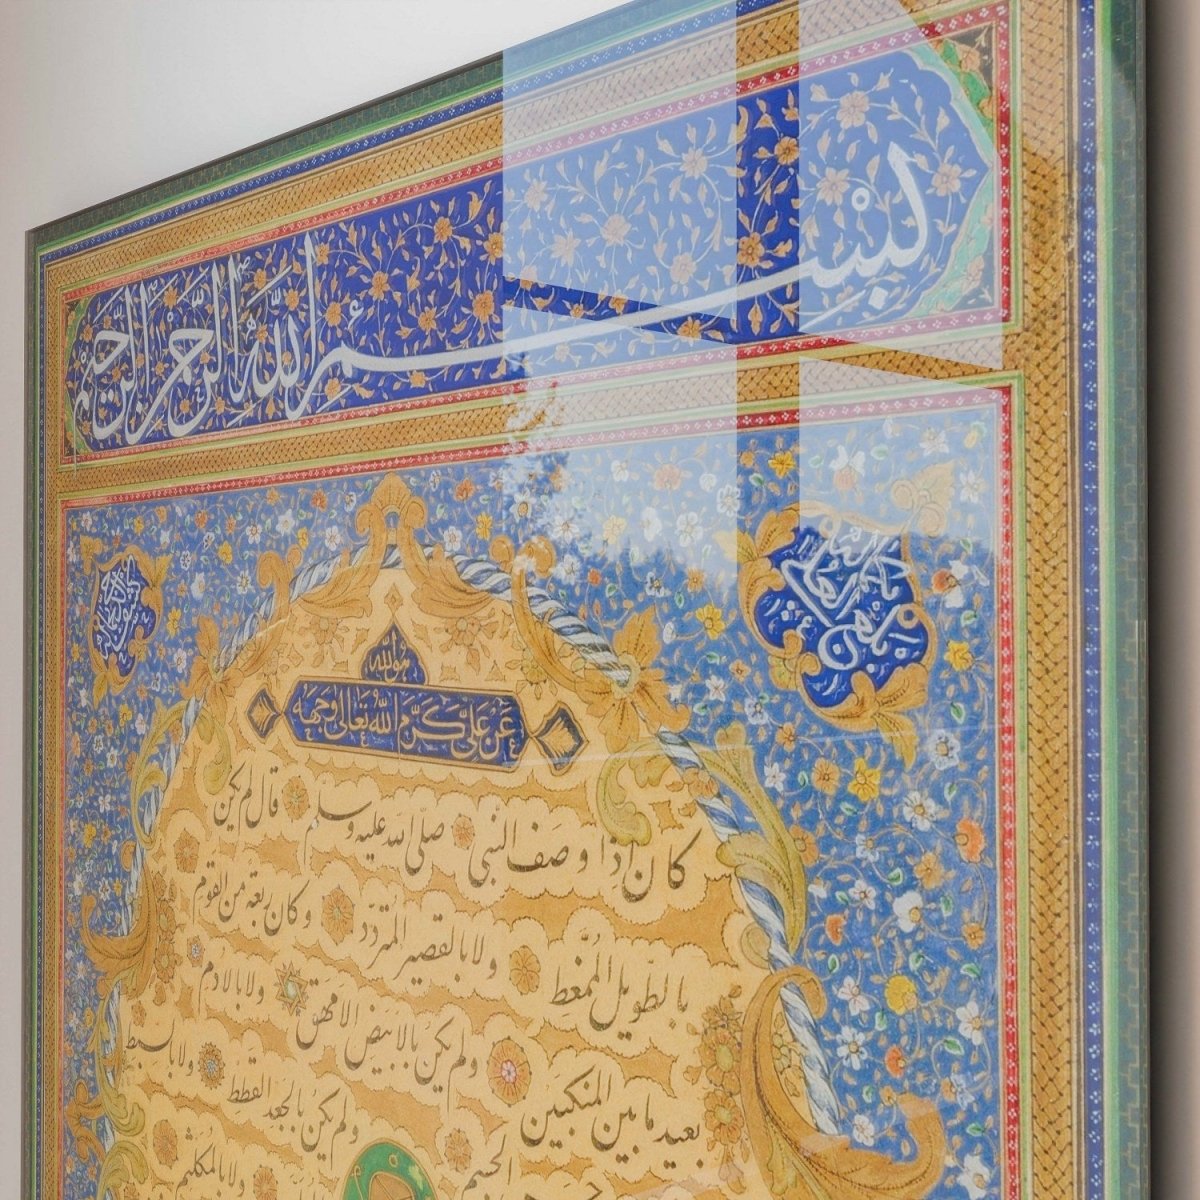 بسم الله الرحمن الرحيم
هو الله
عن علي كرم الله تعالى وجهه
كان إذا وصف النبي صلى الله عليه وسلم قال لم يكن
بالطويل الممغط ولا بالقصير المتردد وكان ربعة من القوم
ولم يكن بالابيض الامهق ولا بالادم
بعيد ما بين المنكبين ولم يكن بالجعد القطط ولا بالسبط
الجسم ولا بالمكلثم